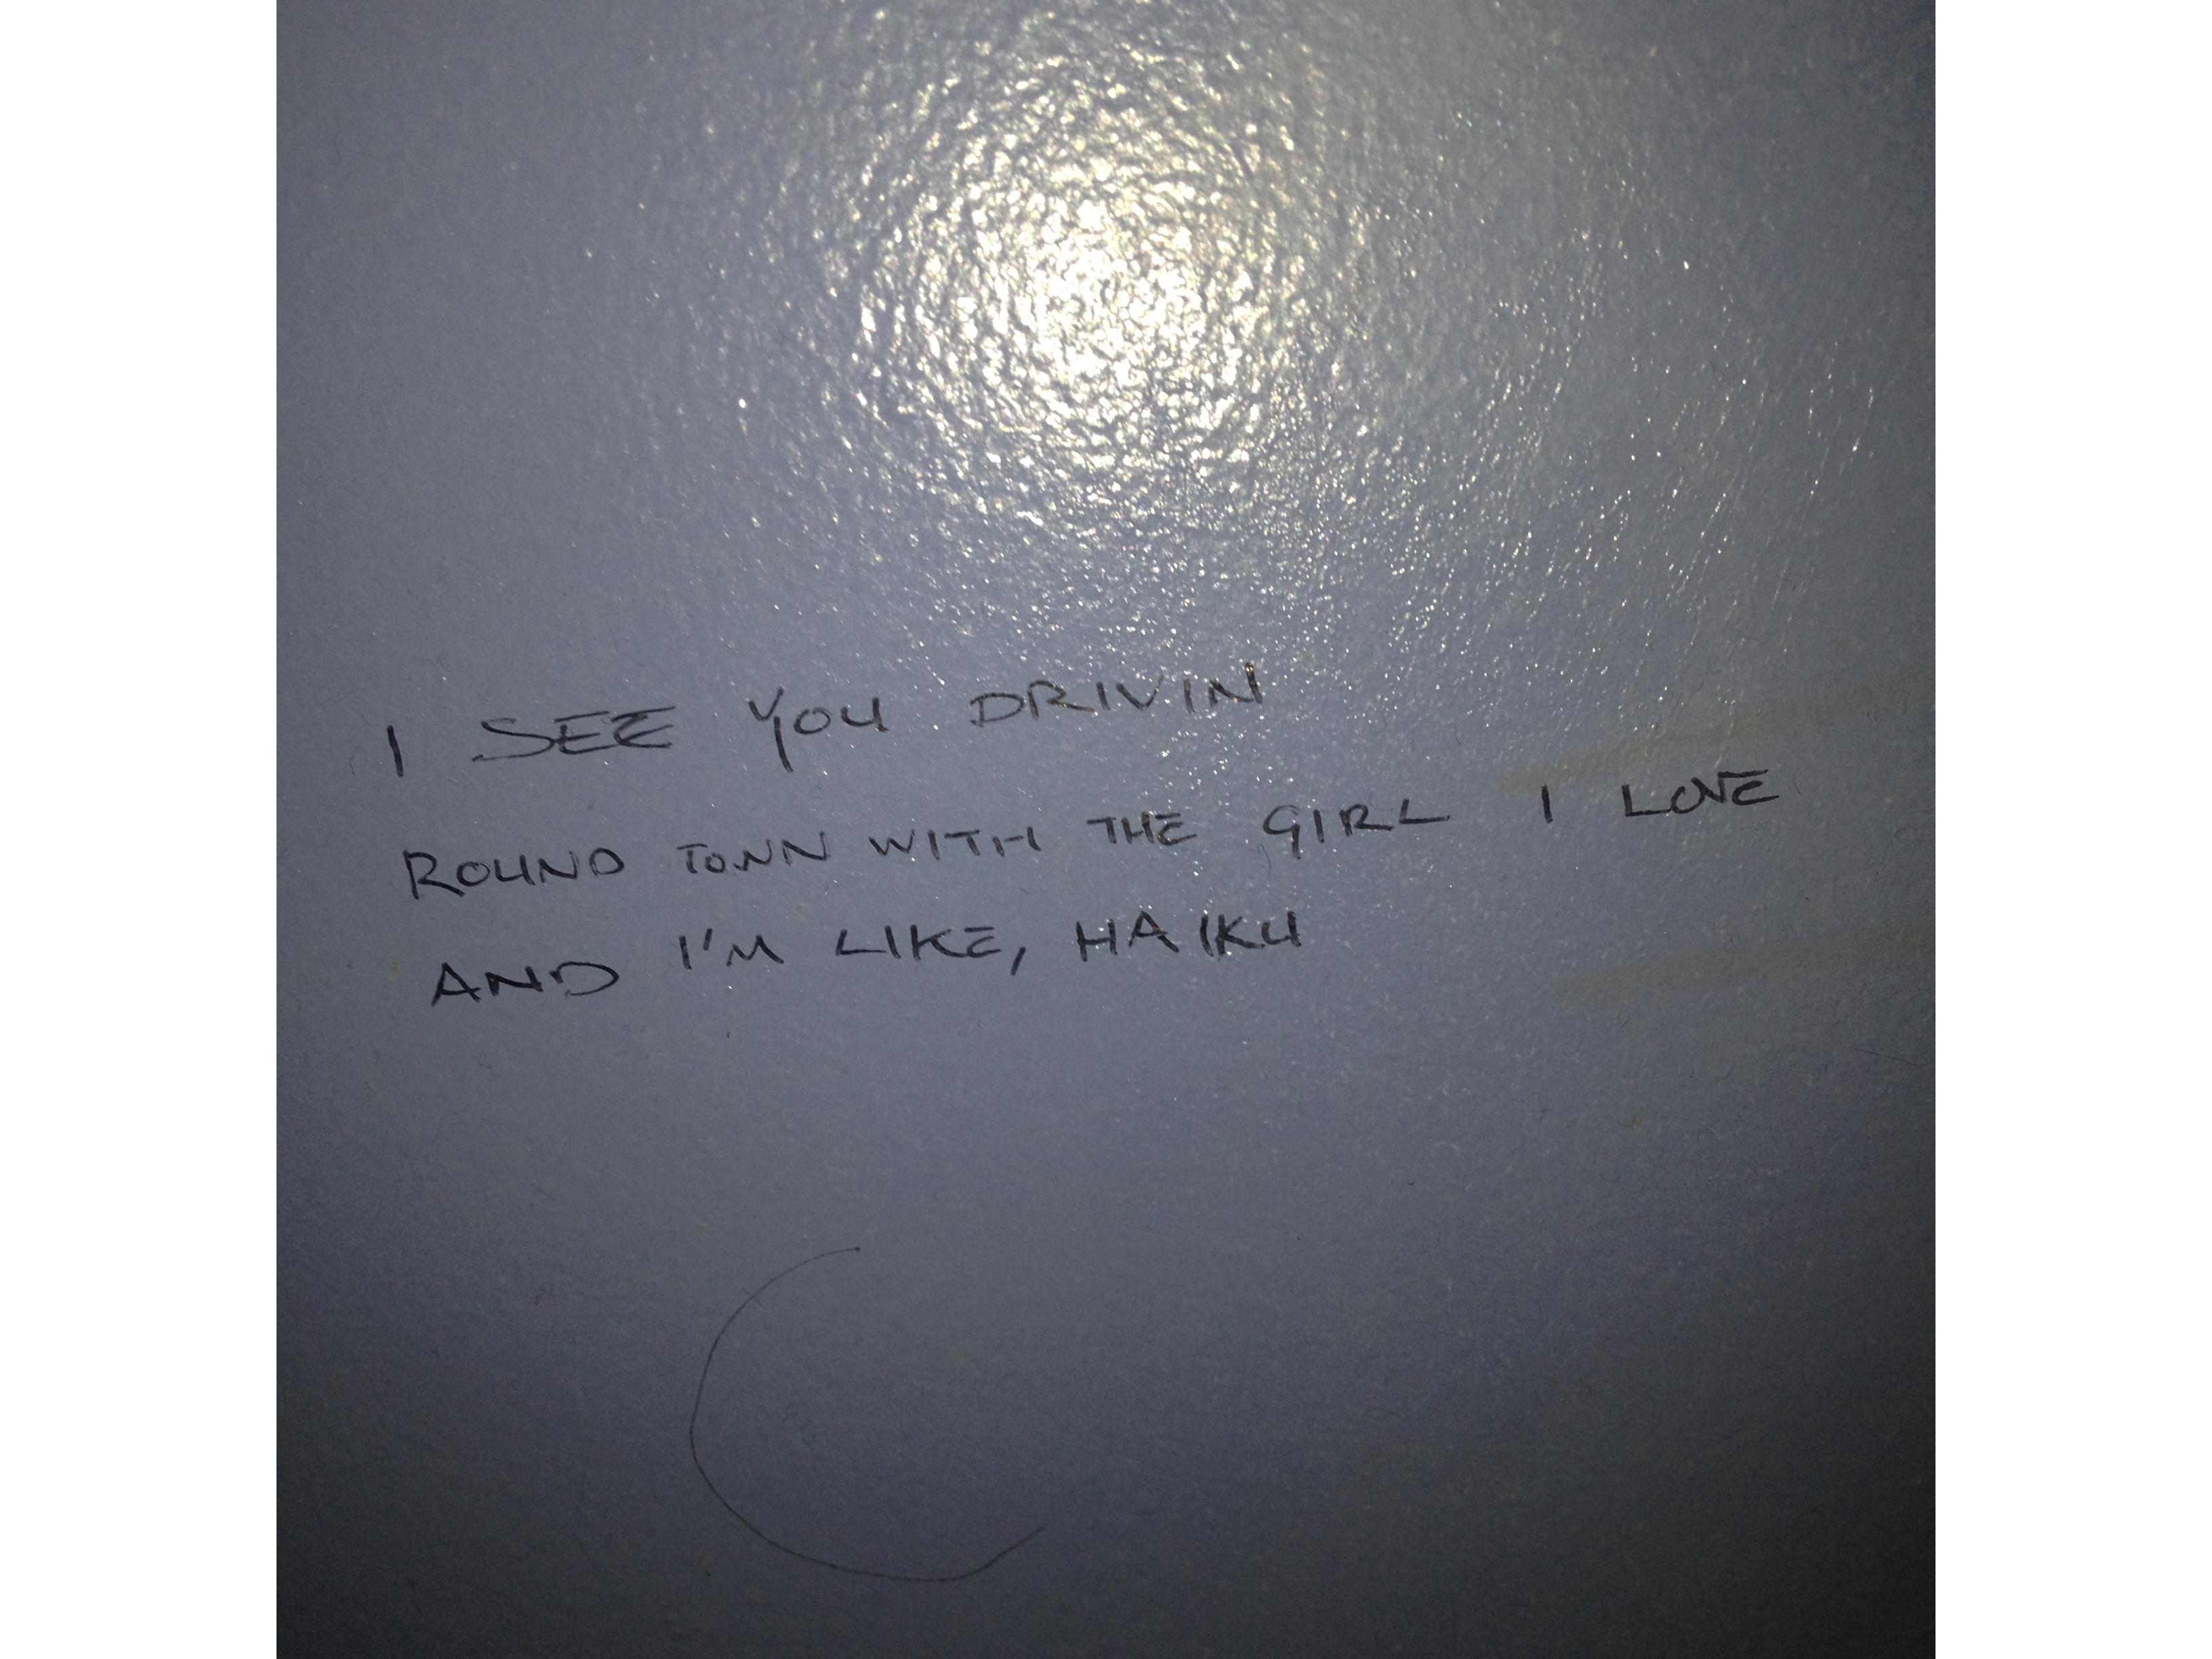 I SEE YOU DRIVIN
ROUND TOWN WITH THE GIRL I LOVE
AND I'M LIKE, HAIKU